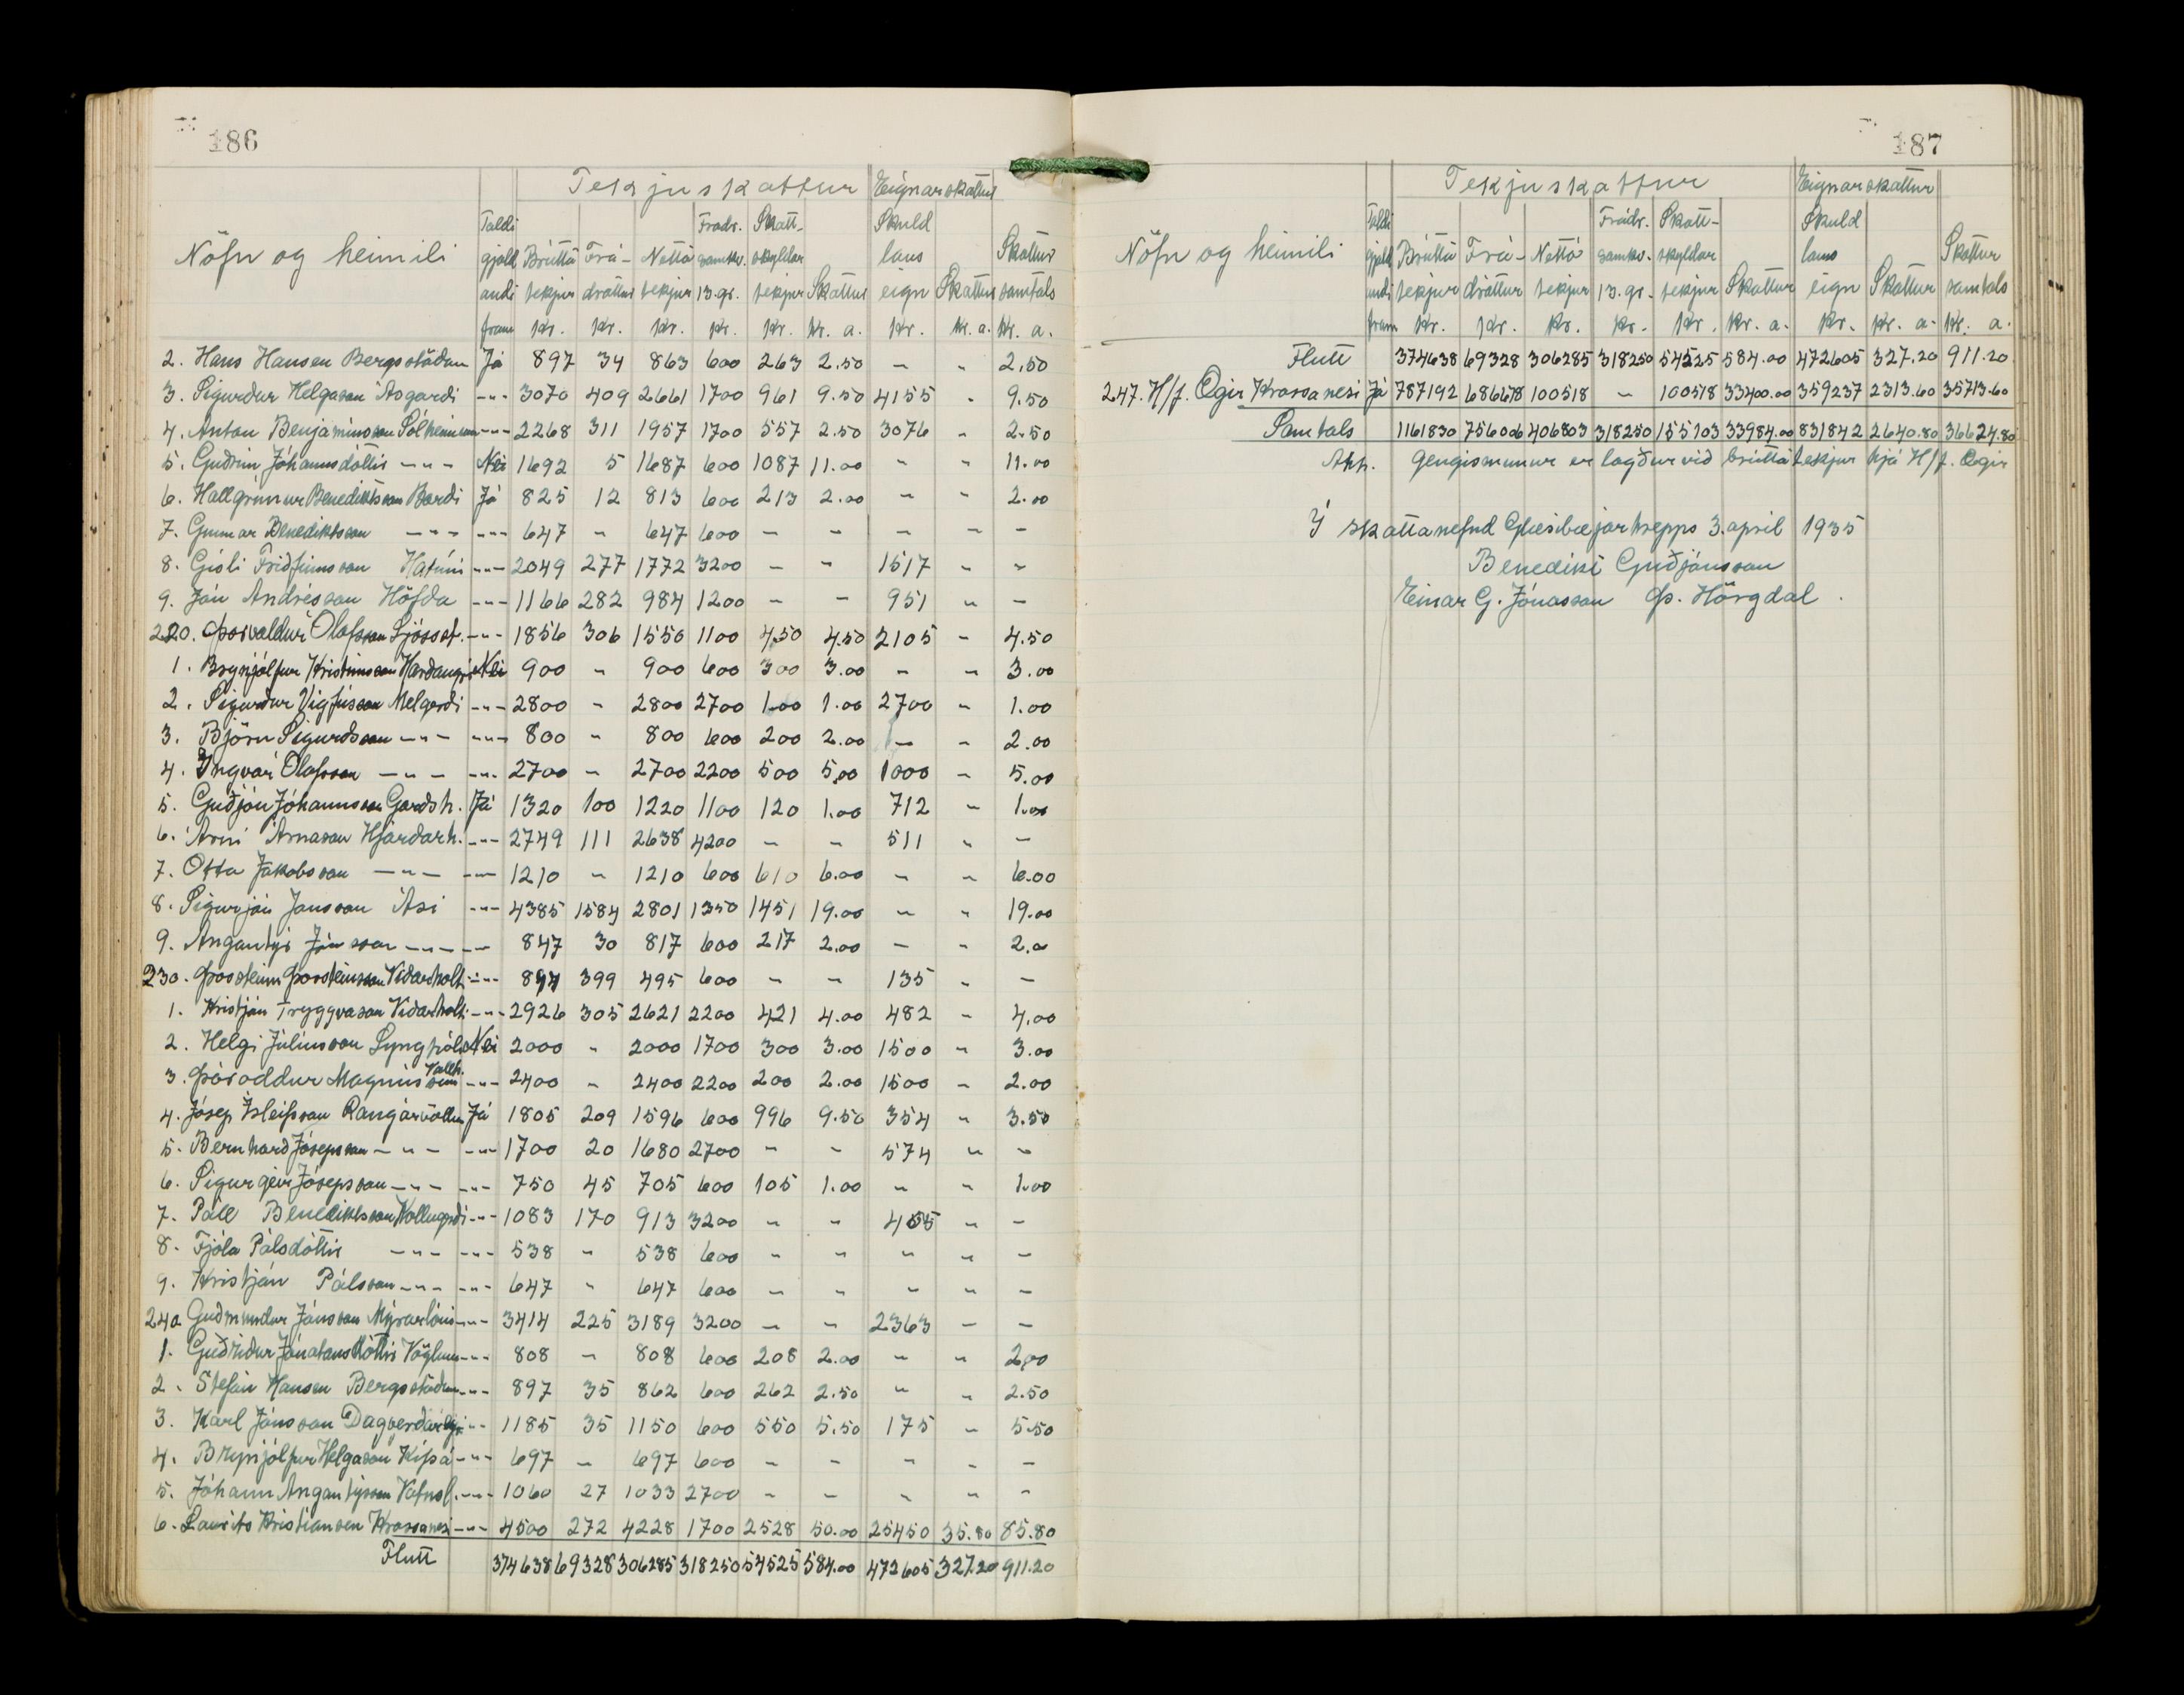 186
Tekjuskattur Eignarskattur
Nöfn og heimili
Taldi gjald andi fram
Brúttó tekjur Kr.
Frá- dráttur Kr.
Nettó tekjur Kr.
Frádr. samkv. 13.gr. Kr.
Skatt- skyldar tekjur Kr.
Skattur Kr. a.
Skuld laus eign Kr.
Skattur Kr. a.
Skattur samtals Kr. a.
2. Hans Hansen Bergsstöðum Já 897 34 863 600 263 2.50 – " 2.50
3. Sigurður Helgason Ásgarði -"- 3070 409 2661 1700 961 9.50 4155 " 9.50
4. Anton Benjamínsson Sólheimum -"- 2268 311 1957 1700 557 2.50 3076 " 2.50
5. Guðrún Jóhannsdóttir -"- Nei 1692 5 1687 600 1087 11.00 " " 11.00
6. Hallgrímur Benediktsson Barði Já 825 12 813 600 213 2.00 " " 2.00
7. Gunnar Benediktsson -"- -"- 647 " 647 600 – – – – –
8. Gísli Friðfinnsson Hátúni -"- 2049 277 1772 3200 – " 1517 " "
9. Jón Andrésson Höfða -"- 1166 282 984 1200 – – 951 " –
220. Þorvaldur Ólafsson -"- 1856 306 1550 1100 450 4.50 2105 – 4.50
1. Brynjólfur Kristinsson Harðangri Nei 900 " 900 600 300 3.00 – " 3.00
2. Sigurður Vigfússon Melgerði -"- 2800 " 2800 2700 100 1.00 2700 " 1.00
3. Björn Sigurðsson -"- -"- 800 " 800 600 200 2.00 – " 2.00
4. Ingvar Ólafsson -"- -"- 2700 – 2700 2200 500 5.00 1000 – 5.00
5. Guðjón Jóhannsson Garðsh. Já 1320 100 1220 1100 120 1.00 712 " 1.00
6. Árni Árnason Hjarðarh. -"- 2749 111 2638 4200 – " 511 " –
7. Otto Jakobsson -"- -"- 1210 " 1210 600 610 6.00 " " 6.00
8. Sigurjón Jónsson Ási -"- 4385 1584 2801 1350 1451 19.00 " " 19.00
9. Angantýr Jónsson -"- -"- 847 30 817 600 217 2.00 – " 2.00
230. Þorsteinn Þorsteinsson Viðarholti -"- 894 399 495 600 – – 135 – –
1. Kristján Tryggvason Viðarholti -"- 2926 305 2621 2200 421 4.00 482 " 4.00
2. Helgi Júlíusson Lynghóli Nei 2000 " 2000 1700 300 3.00 1500 " 3.00
3. Þóroddur Magnússon Vallh. -"- 2400 " 2400 2200 200 2.00 1500 – 2.00
4. Jósep Ísleifsson Rangárvöllum Já 1805 209 1596 600 996 9.50 354 " 3.50
5. Bernharð Jósepsson -"- -"- 1700 20 1680 2700 " – 574 " "
6. Sigurgeir Jósepsson -"- -"- 750 45 705 600 105 1.00 " " 1.00
7. Páll Benediktsson Kollugerði -"- 1083 170 913 3200 " " 455 " –
8. Fjóla Pálsdóttir -"- -"- 538 " 538 600 " " " " –
9. Kristján Pálsson -"- -"- 647 " 647 600 " " " " –
240 Guðmundur Jónsson Mýrarlóni -"- 3414 225 3189 3200 – " 2363 – –
1. Guðríður Jónatansdóttir Vöglum -"- 808 – 808 600 208 2.00 " " 2.00
2. Stefán Hansen Bergsstöðum -"- 897 35 862 600 262 2.50 " " 2.50
3. Karl Jónsson Dagverðareyri -"- 1185 35 1150 600 550 5.50 175 " 5.50
4. Brynjólfur Helgason Kífsá -"- 697 – 697 600 – – – – –
5. Jóhann Angantýsson -"- 1060 27 1033 2700 – – " " "
6. Laurits Kristiansen Krossanesi -"- 4500 272 4228 1700 2528 50.00 25450 35.80 85.80
Flutt 374638 69328 306285 318250 54525 584.00 472605 327.20 911.20
187
Tekjuskattur Eignarskattur
Nöfn og heimili
Taldi gjald andi fram
Brúttó tekjur Kr.
Frá- dráttur Kr.
Nettó tekjur Kr.
Frádr. samkv. 13.gr. Kr.
Skatt- skyldar tekjur Kr.
Skattur Kr. a.
Skuld laus eign Kr.
Skattur Kr. a.
Skattur samtals Kr. a.
Flutt 374638 69328 306285 318250 54525 584.00 472605 327.20 911.20
247. H/f. Ægir Krossanesi Já 787192 686678 100518 – 100578 33400.00 359237 2313.60 35713.60
Samtals 1161830 756006 406803 318250 155103 33984.00 831842 2640.80 36624.80
Ath. Gengismunur er lagður við brúttótekjur hjá H/f. Ægir
Í skattanefnd Glæsibæjarhrepps 3. apríl 1935
Benedikt Guðjónsson
Einar G. Jónasson Þ. Hörgdal.